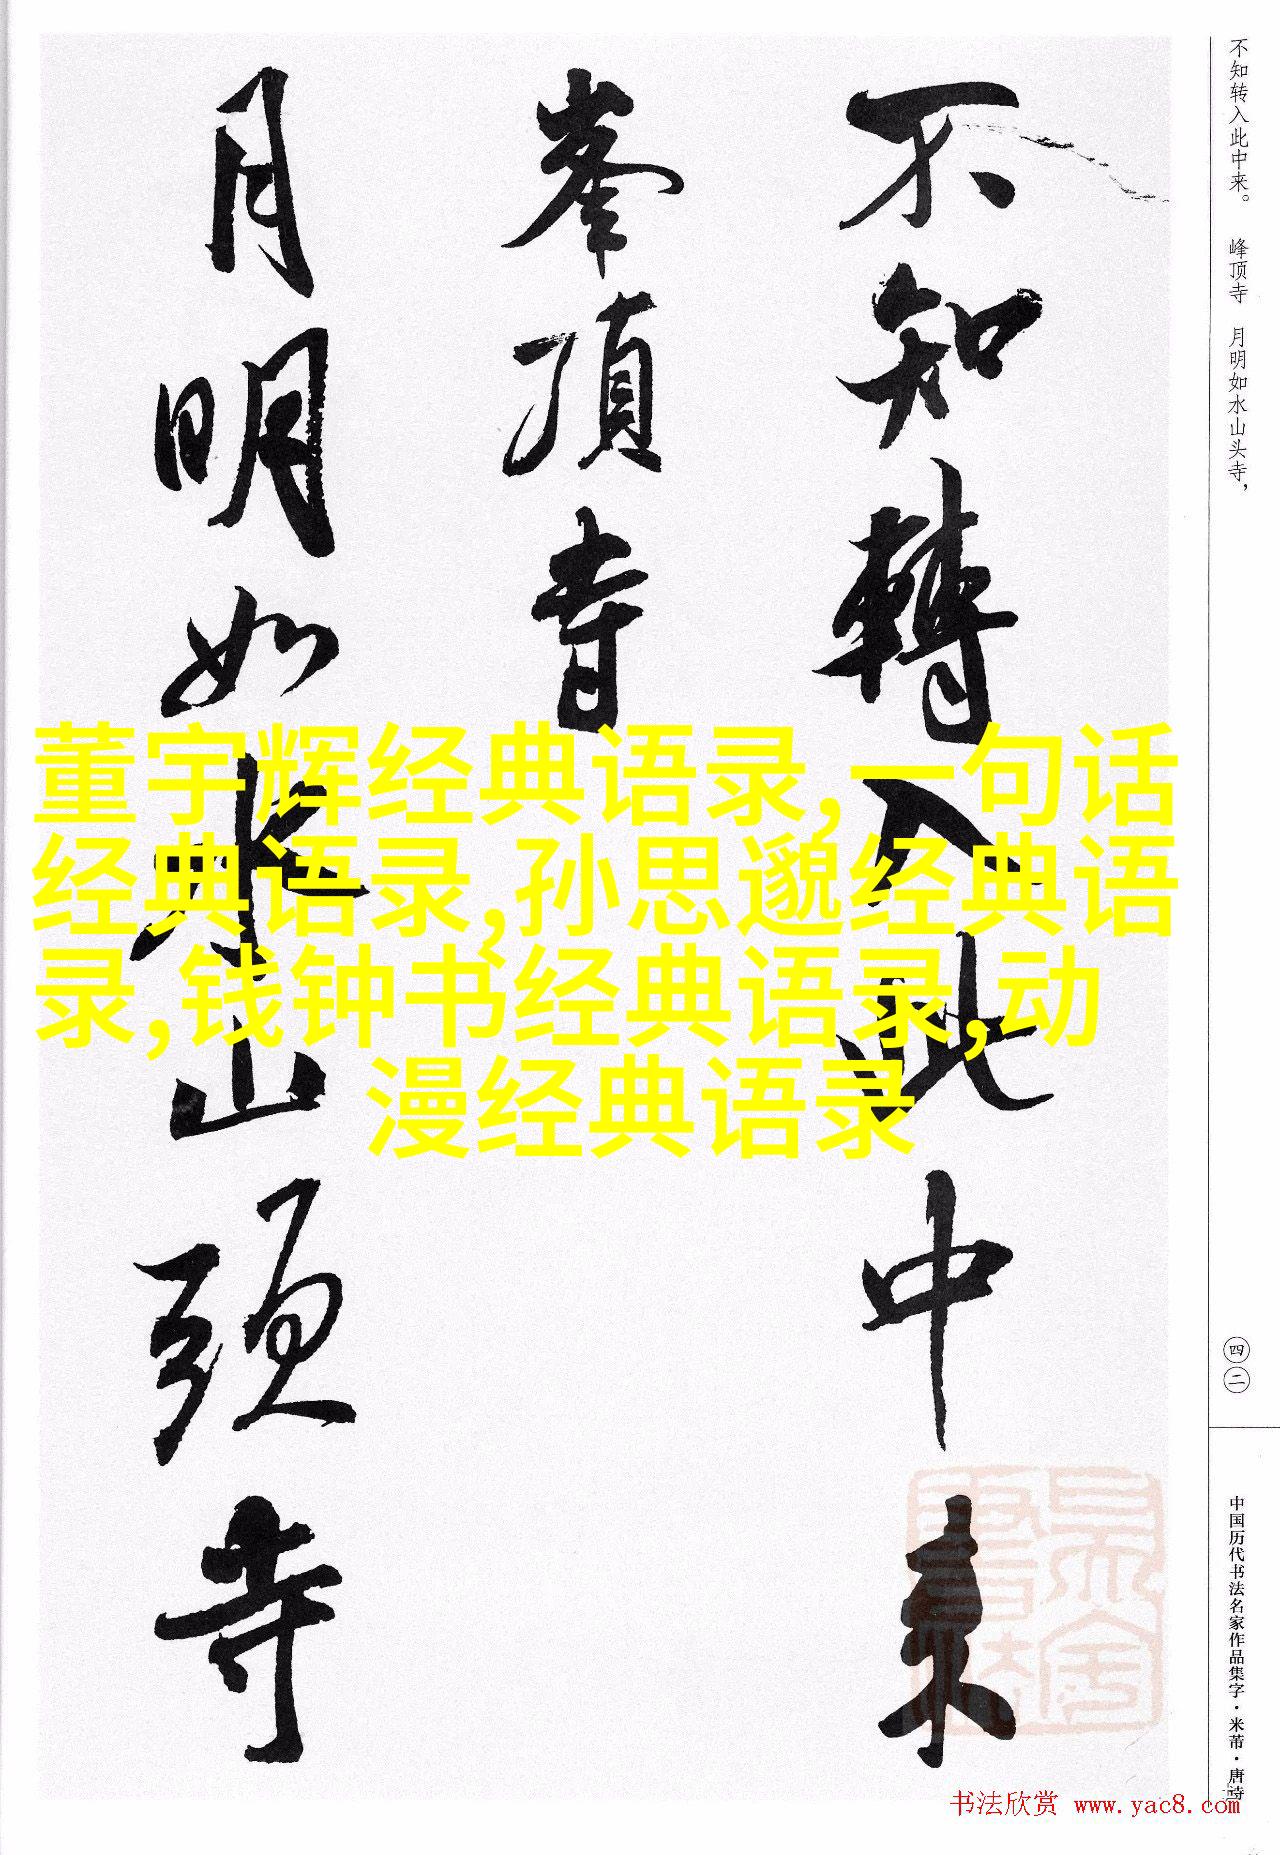 不知轉入此中来
峯頂寺
月明如水山頭寺
不知转入此中来。 峰顶寺 月明如水山头寺，
四二
中国历代书法名家作品集字·米芾·唐诗
董宇辉经典语录,一句话
经典语录,孙思邈经典语
录,钱钟书经典语录,动
漫经典语录
书法欣赏 www.yac8.com